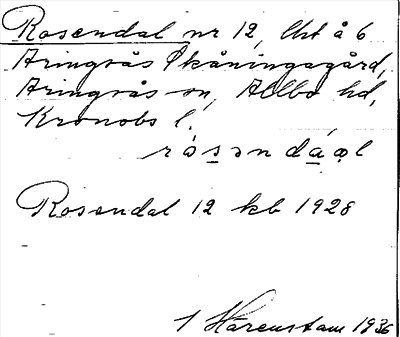 Rosendal nr 12, Uht å 6
Aringsås Skåningagård,
Aringsås sn, Allbo hd,
Kronobs l.
rosəndáəl
Rosendal 12 kb 1928
1 Härenstam 1936